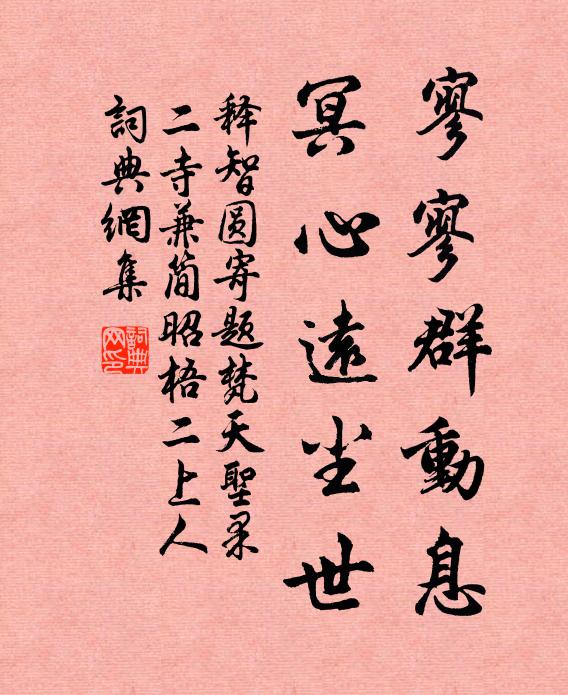 寥寥群動息
冥心遠尘世
释智圆寄題梵天聖果
二寺兼简昭梧二上人
詞典網集
詞典網印